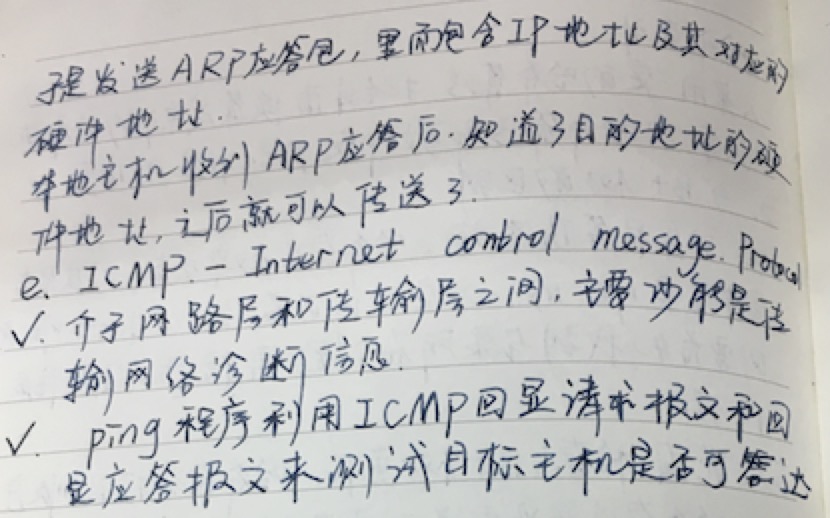 于是发送ARP应答包,里面包含IP地址及其对应的
硬件地址.
本地主机收到ARP应答后.知道了目的地址的硬
件地址,之后就可以传送了.
e. ICMP. - Internet control message. Protocol
√. 介于网路层和传输层之间.主要功能是传
输网络诊断信息.
√. ping程序利用ICMP回显请求报文和回
显应答报文来测试目标主机是否可答达